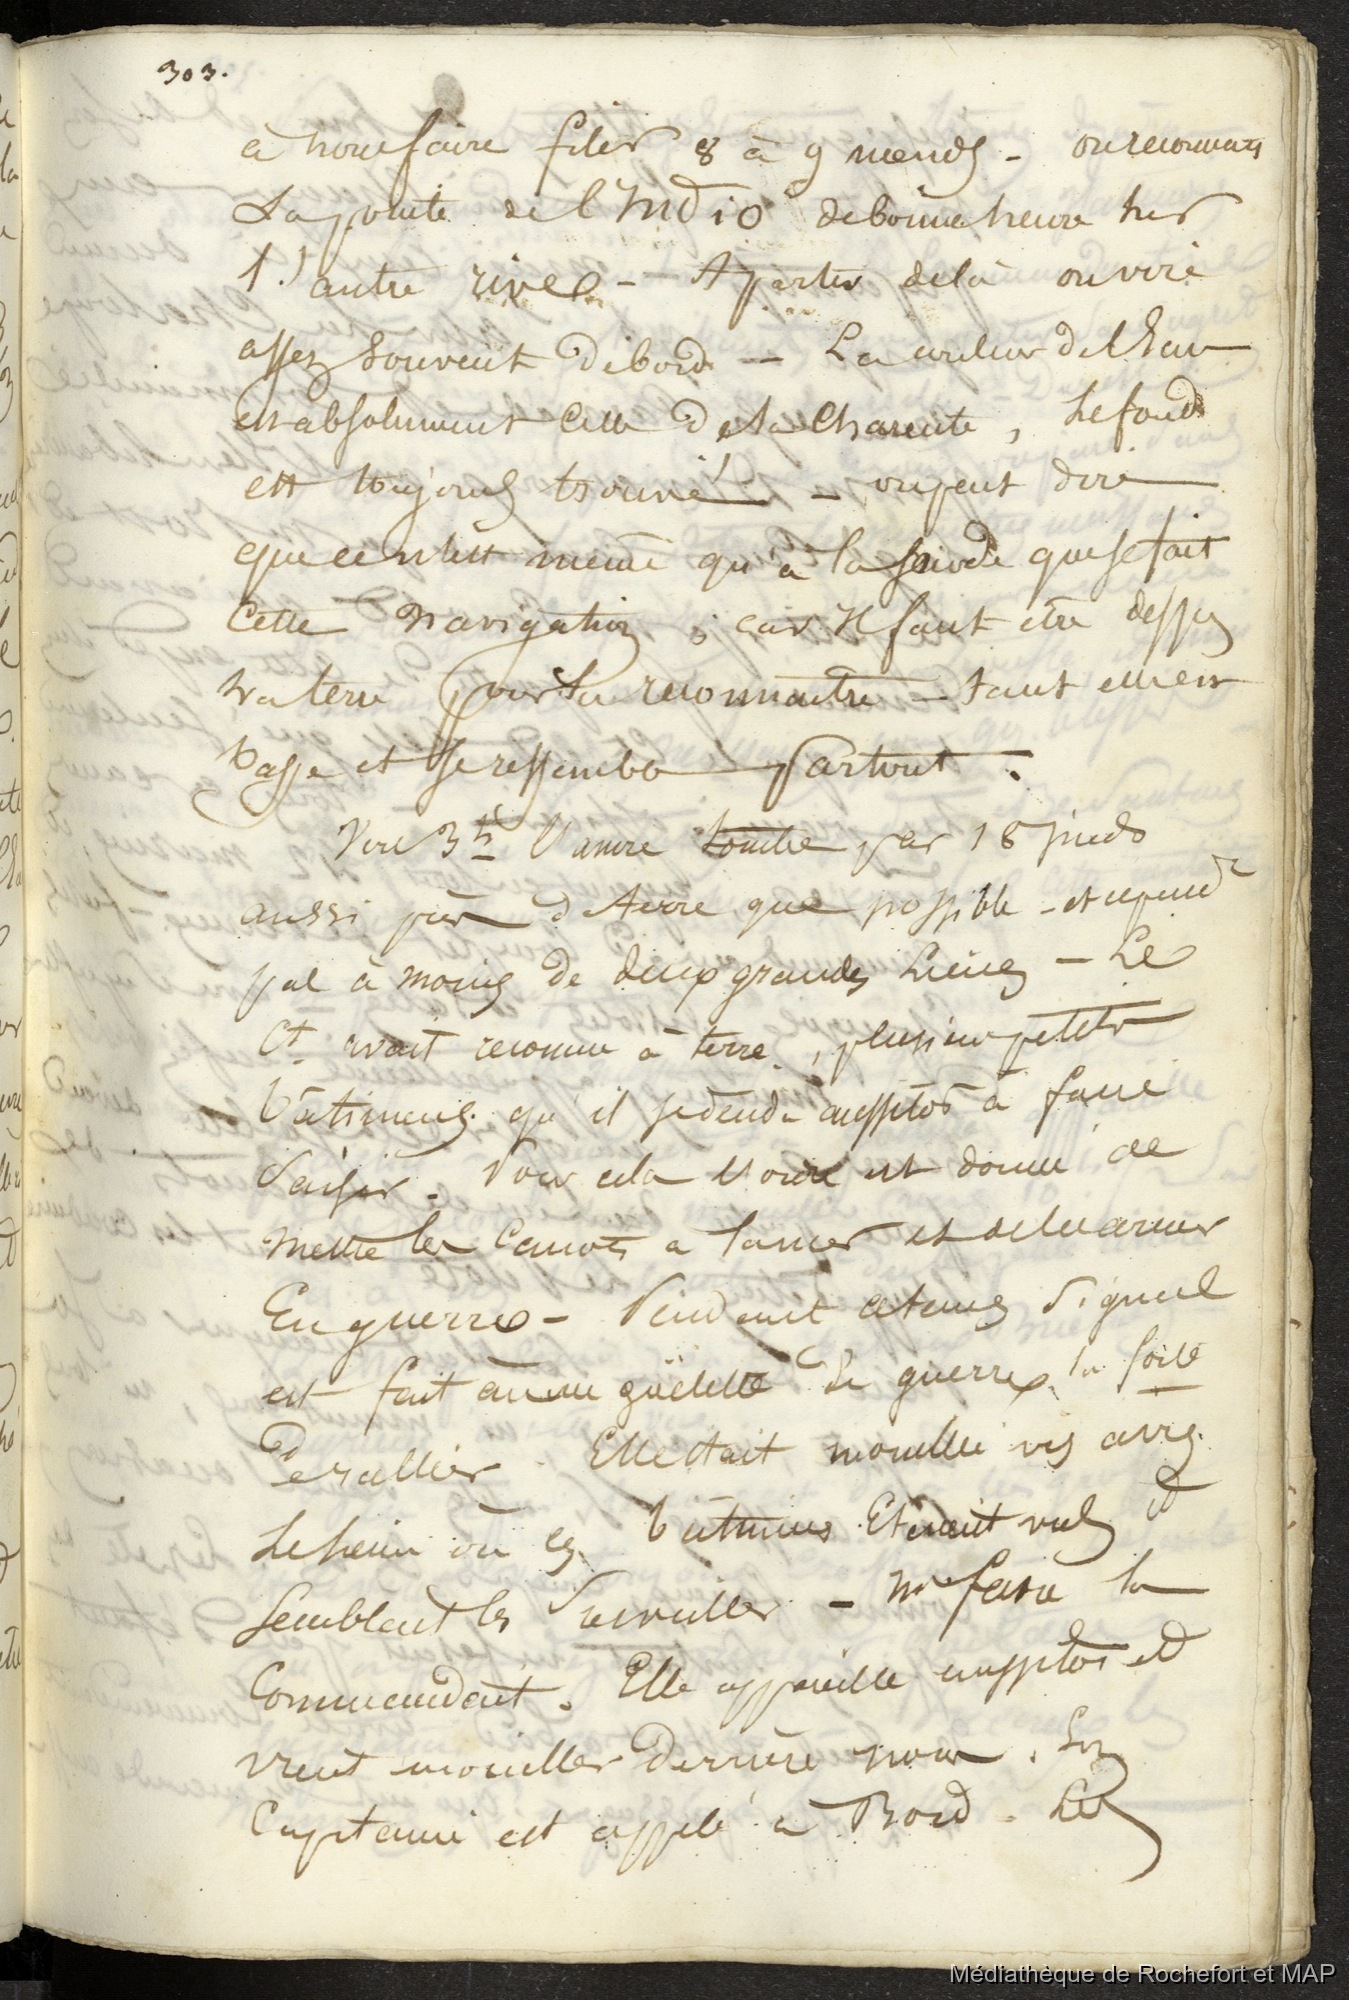 303.
à nous faire filer 8 à 9 nœuds - on reconnais
La pointe de l'Indio de bonne heure sur
l'autre rive - A partir de là on vire
assez souvent de bord - La couleur de l'Eau
est absolument Celle de la Charente, le fond
est toujours trouvé - on peut dire
que ce n'est même qu'à la sonde que se fait
Cette navigation, car il faut être dessus
la terre pour la reconnaître - tant elle est
basse et se ressemble partout.
Vers 3h l'ancre tombe par 18 pieds
aussi près de terre que possible - et cependt
pas à moins de deux grandes lieues - Le
Ct avait reconnu à terre, plusieurs petits
bâtimens qu'il se décide aussitôt à faire
saisir. Pour cela l'ordre est donné de
mettre les Canots à la mer et de les armer
En guerre - Pendant ce tems Signal
est fait à une goëlette de guerre la forte
de rallier. Elle était mouillée vis à vis
le lieu où ces bâtimens Etaient vus et
semblait les surveiller - Mr la
Commandait. Elle appareille aussitôt et
vient mouiller derrière nous. Son
Capitaine est appelé à Bord. Les
Médiathèque de Rochefort et MAP